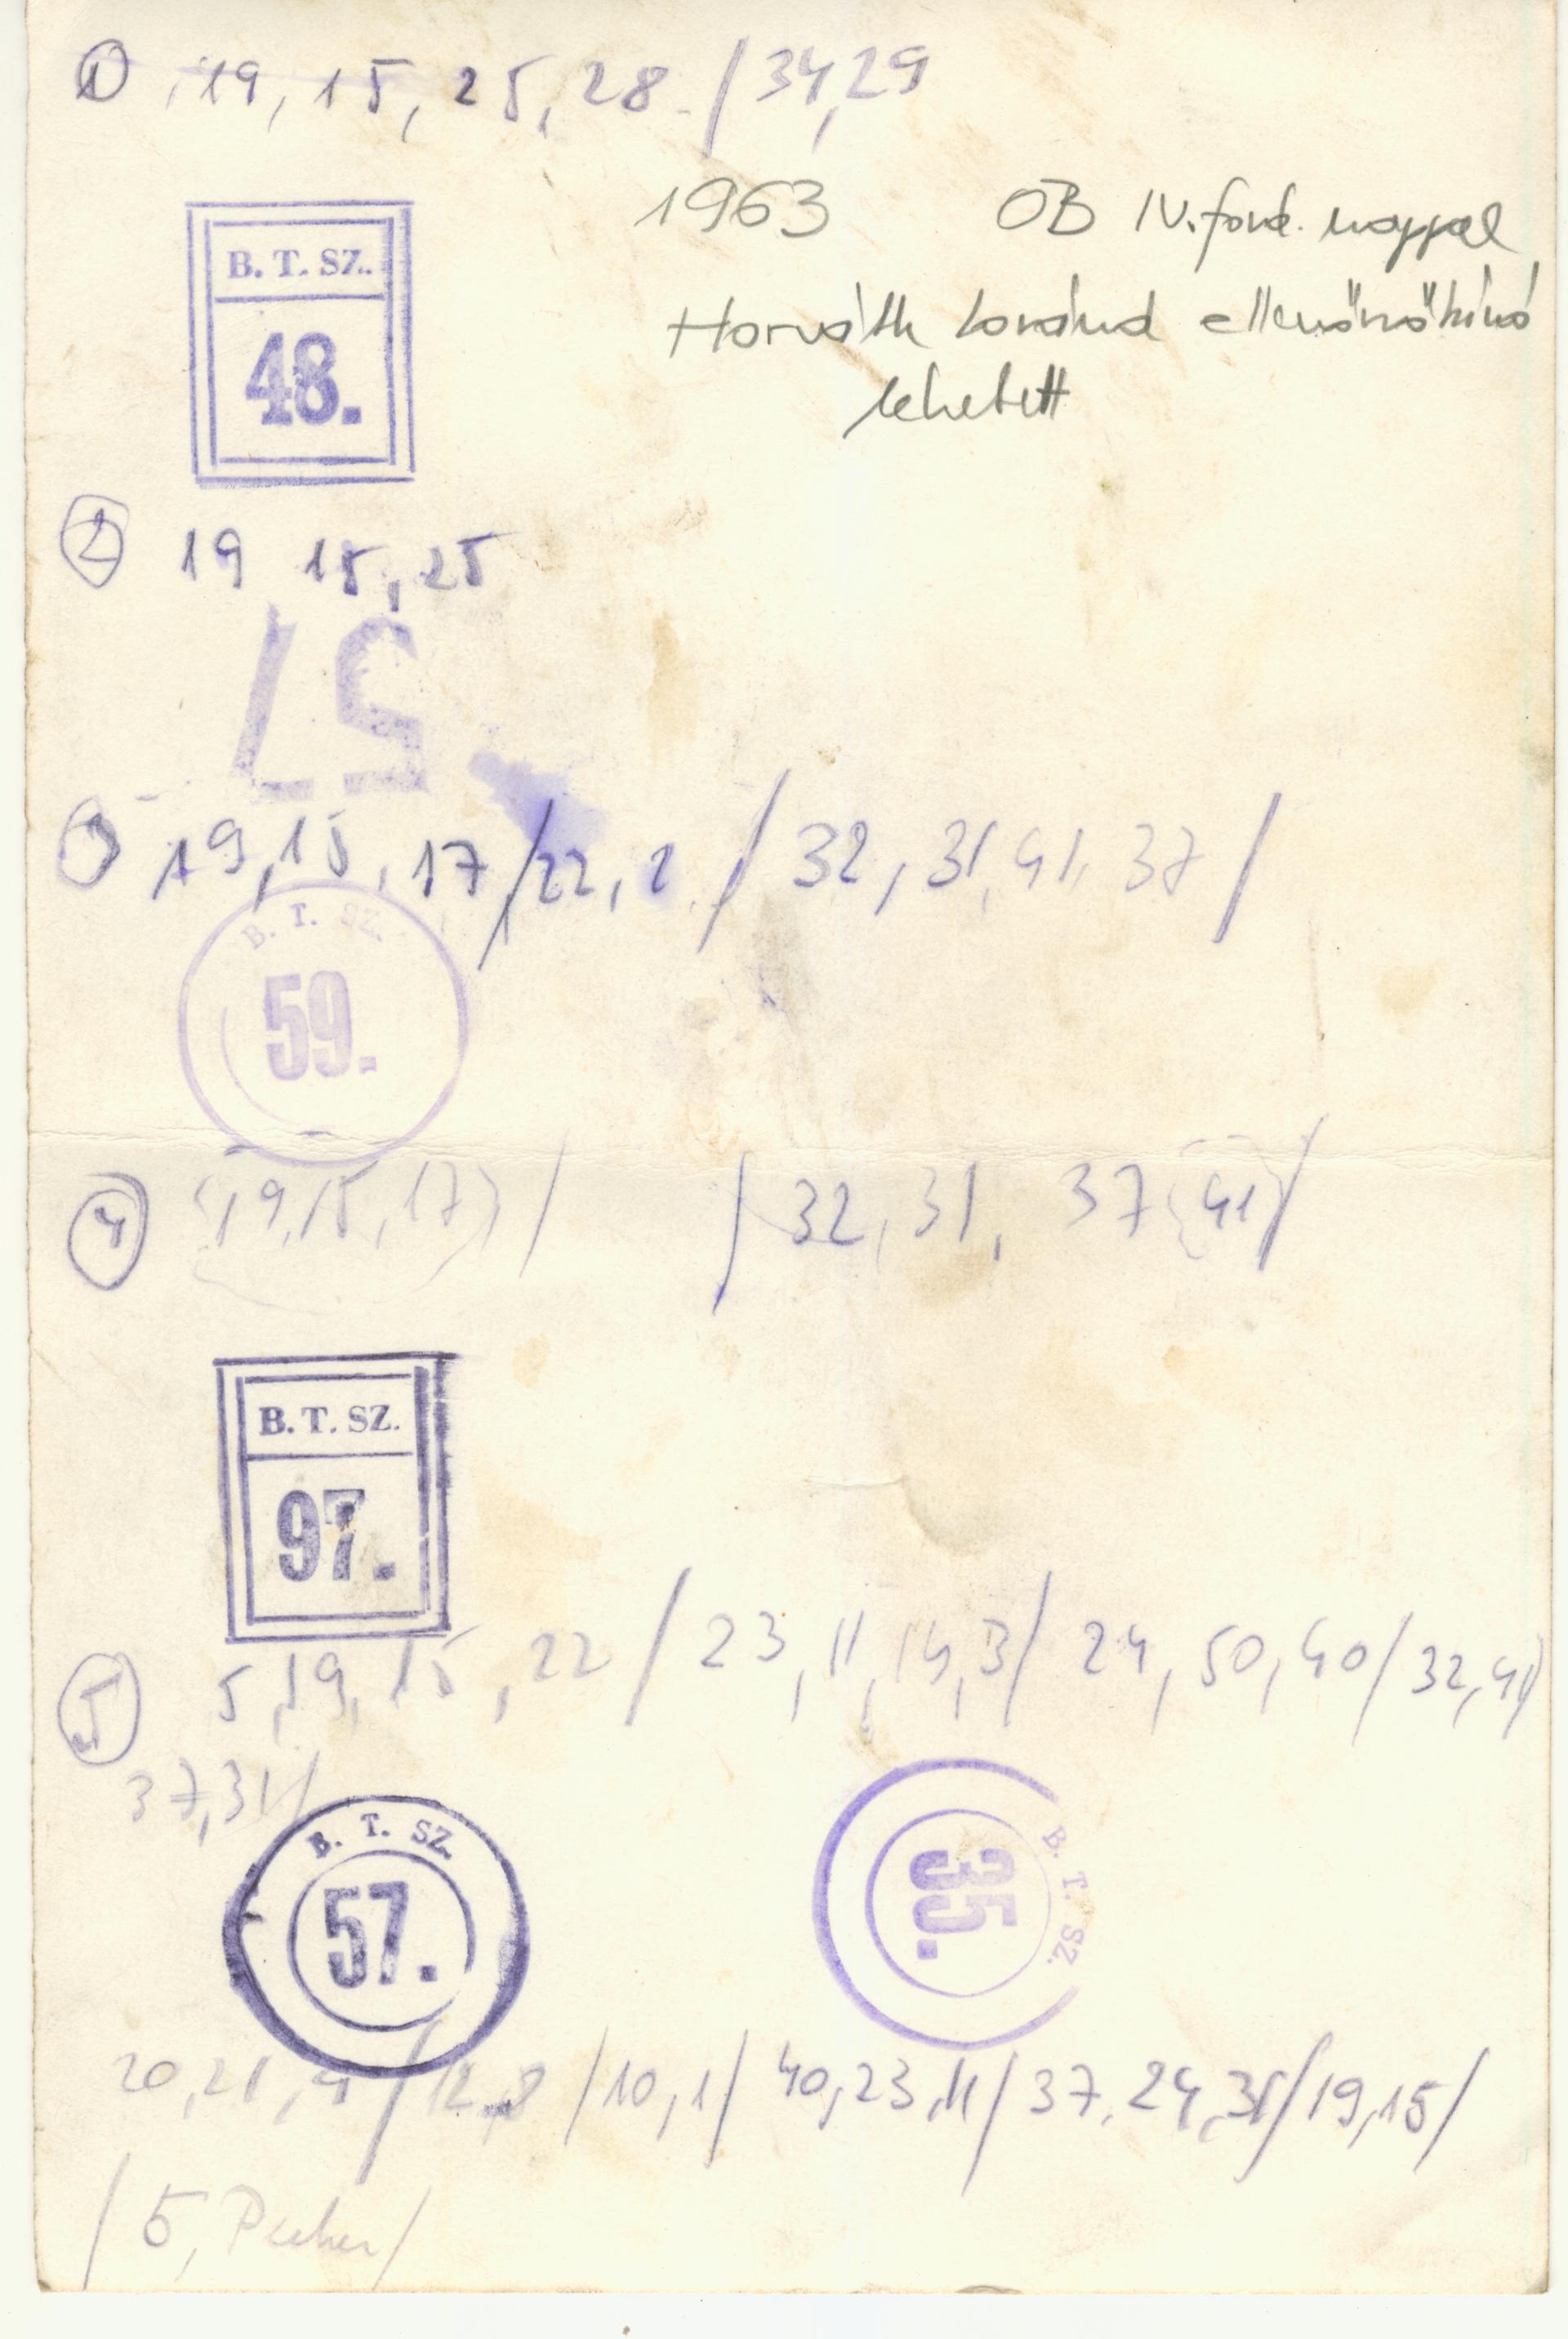 ① 19, 15, 25, 28 / 34, 29
1963 OB IV. ford. nappal
Horváth Loránd ellenőrzőkönyv
lehetett
B. T. SZ.
48.
② 19 15, 25
57
③ 19, 15, 17 / 22, 2 / 32, 31, 41, 37 /
B. T. SZ.
59.
④ (19, 15, 17) / / 32, 31, 37 (41) /
B. T. SZ.
97.
⑤ 5, 19, 15, 22 / 23, 11, 14, 3 / 24, 50, 40 / 32, 41,
37, 31 /
B. T. SZ.
57.
B. T. SZ.
35.
20, 21, 4 / 12, 8 / 10, 1 / 40, 23, 11 / 37, 24, 31 / 19, 15 /
/ 5,